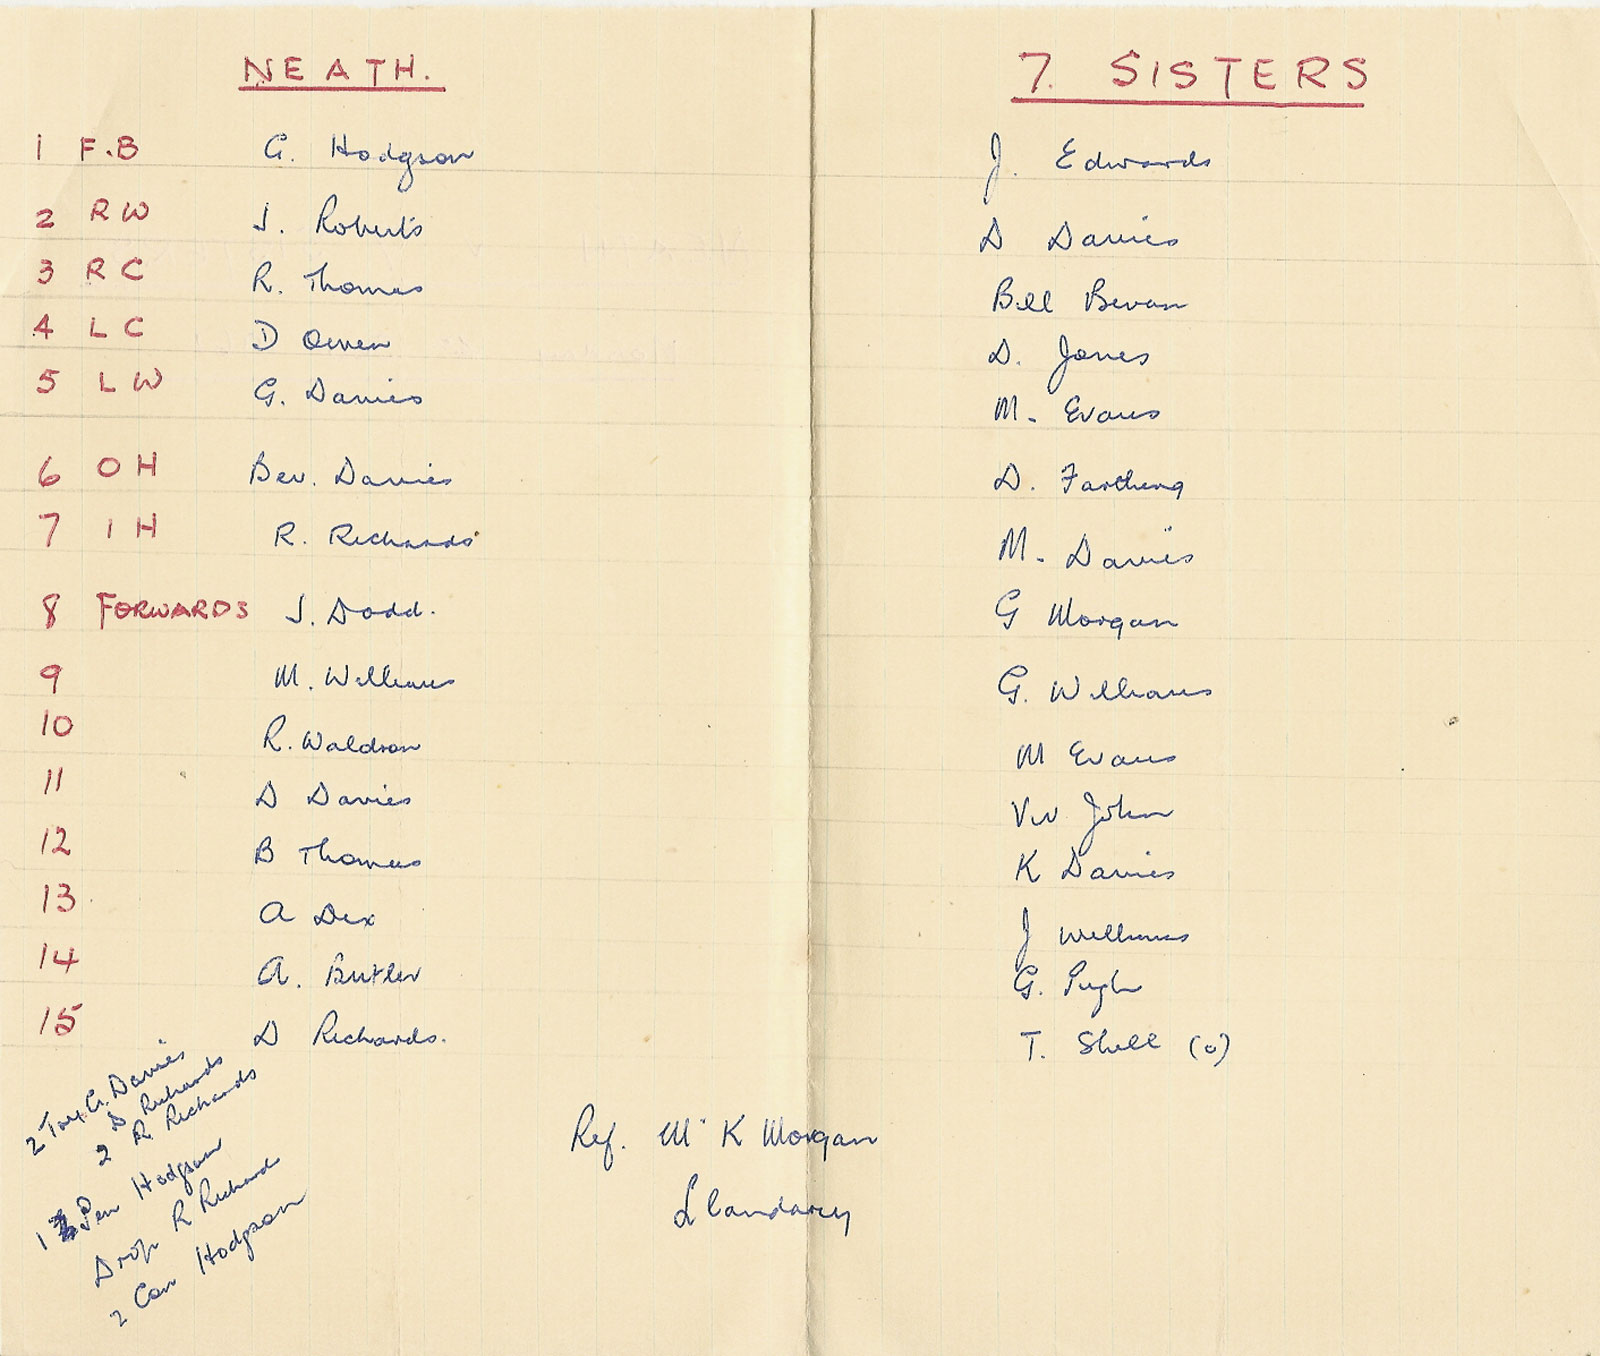 NEATH. 7. SISTERS
1 F.B G. Hodgson J. Edwards
2 RW J. Roberts D Davies
3 RC R. Thomas Bill Bevan
4 LC D Owen D. Jones
5 LW G. Davies M. Evans
6 OH Bev. Davies D. Farthing
7 IH R. Richards M. Davies
8 FORWARDS J. Dodd. G Morgan
9 M. Williams G. Williams
10 R. Waldron M Evans
11 D Davies Viv John
12 B Thomas K Davies
13 A Dix J Williams
14 A. Butler G. Pugh
15 D Richards. T. Shell (o)
2 Try. G. Davies
D Richards
2 R. Richards
1 Pen Hodgson
Drop R Richard
2 Con Hodgson
Ref. Mr K Morgan
Llandarcy